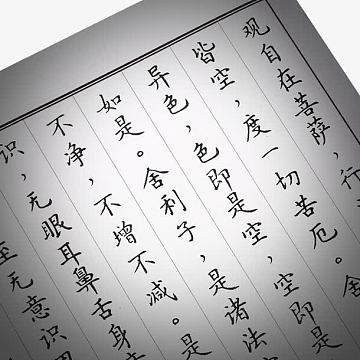 观自在菩萨，行
皆空，度一切苦厄。舍
异色，色即是空，空即是
如是。舍利子，是诸法
不净，不增不减。是
识，无眼耳鼻舌身
至无意识